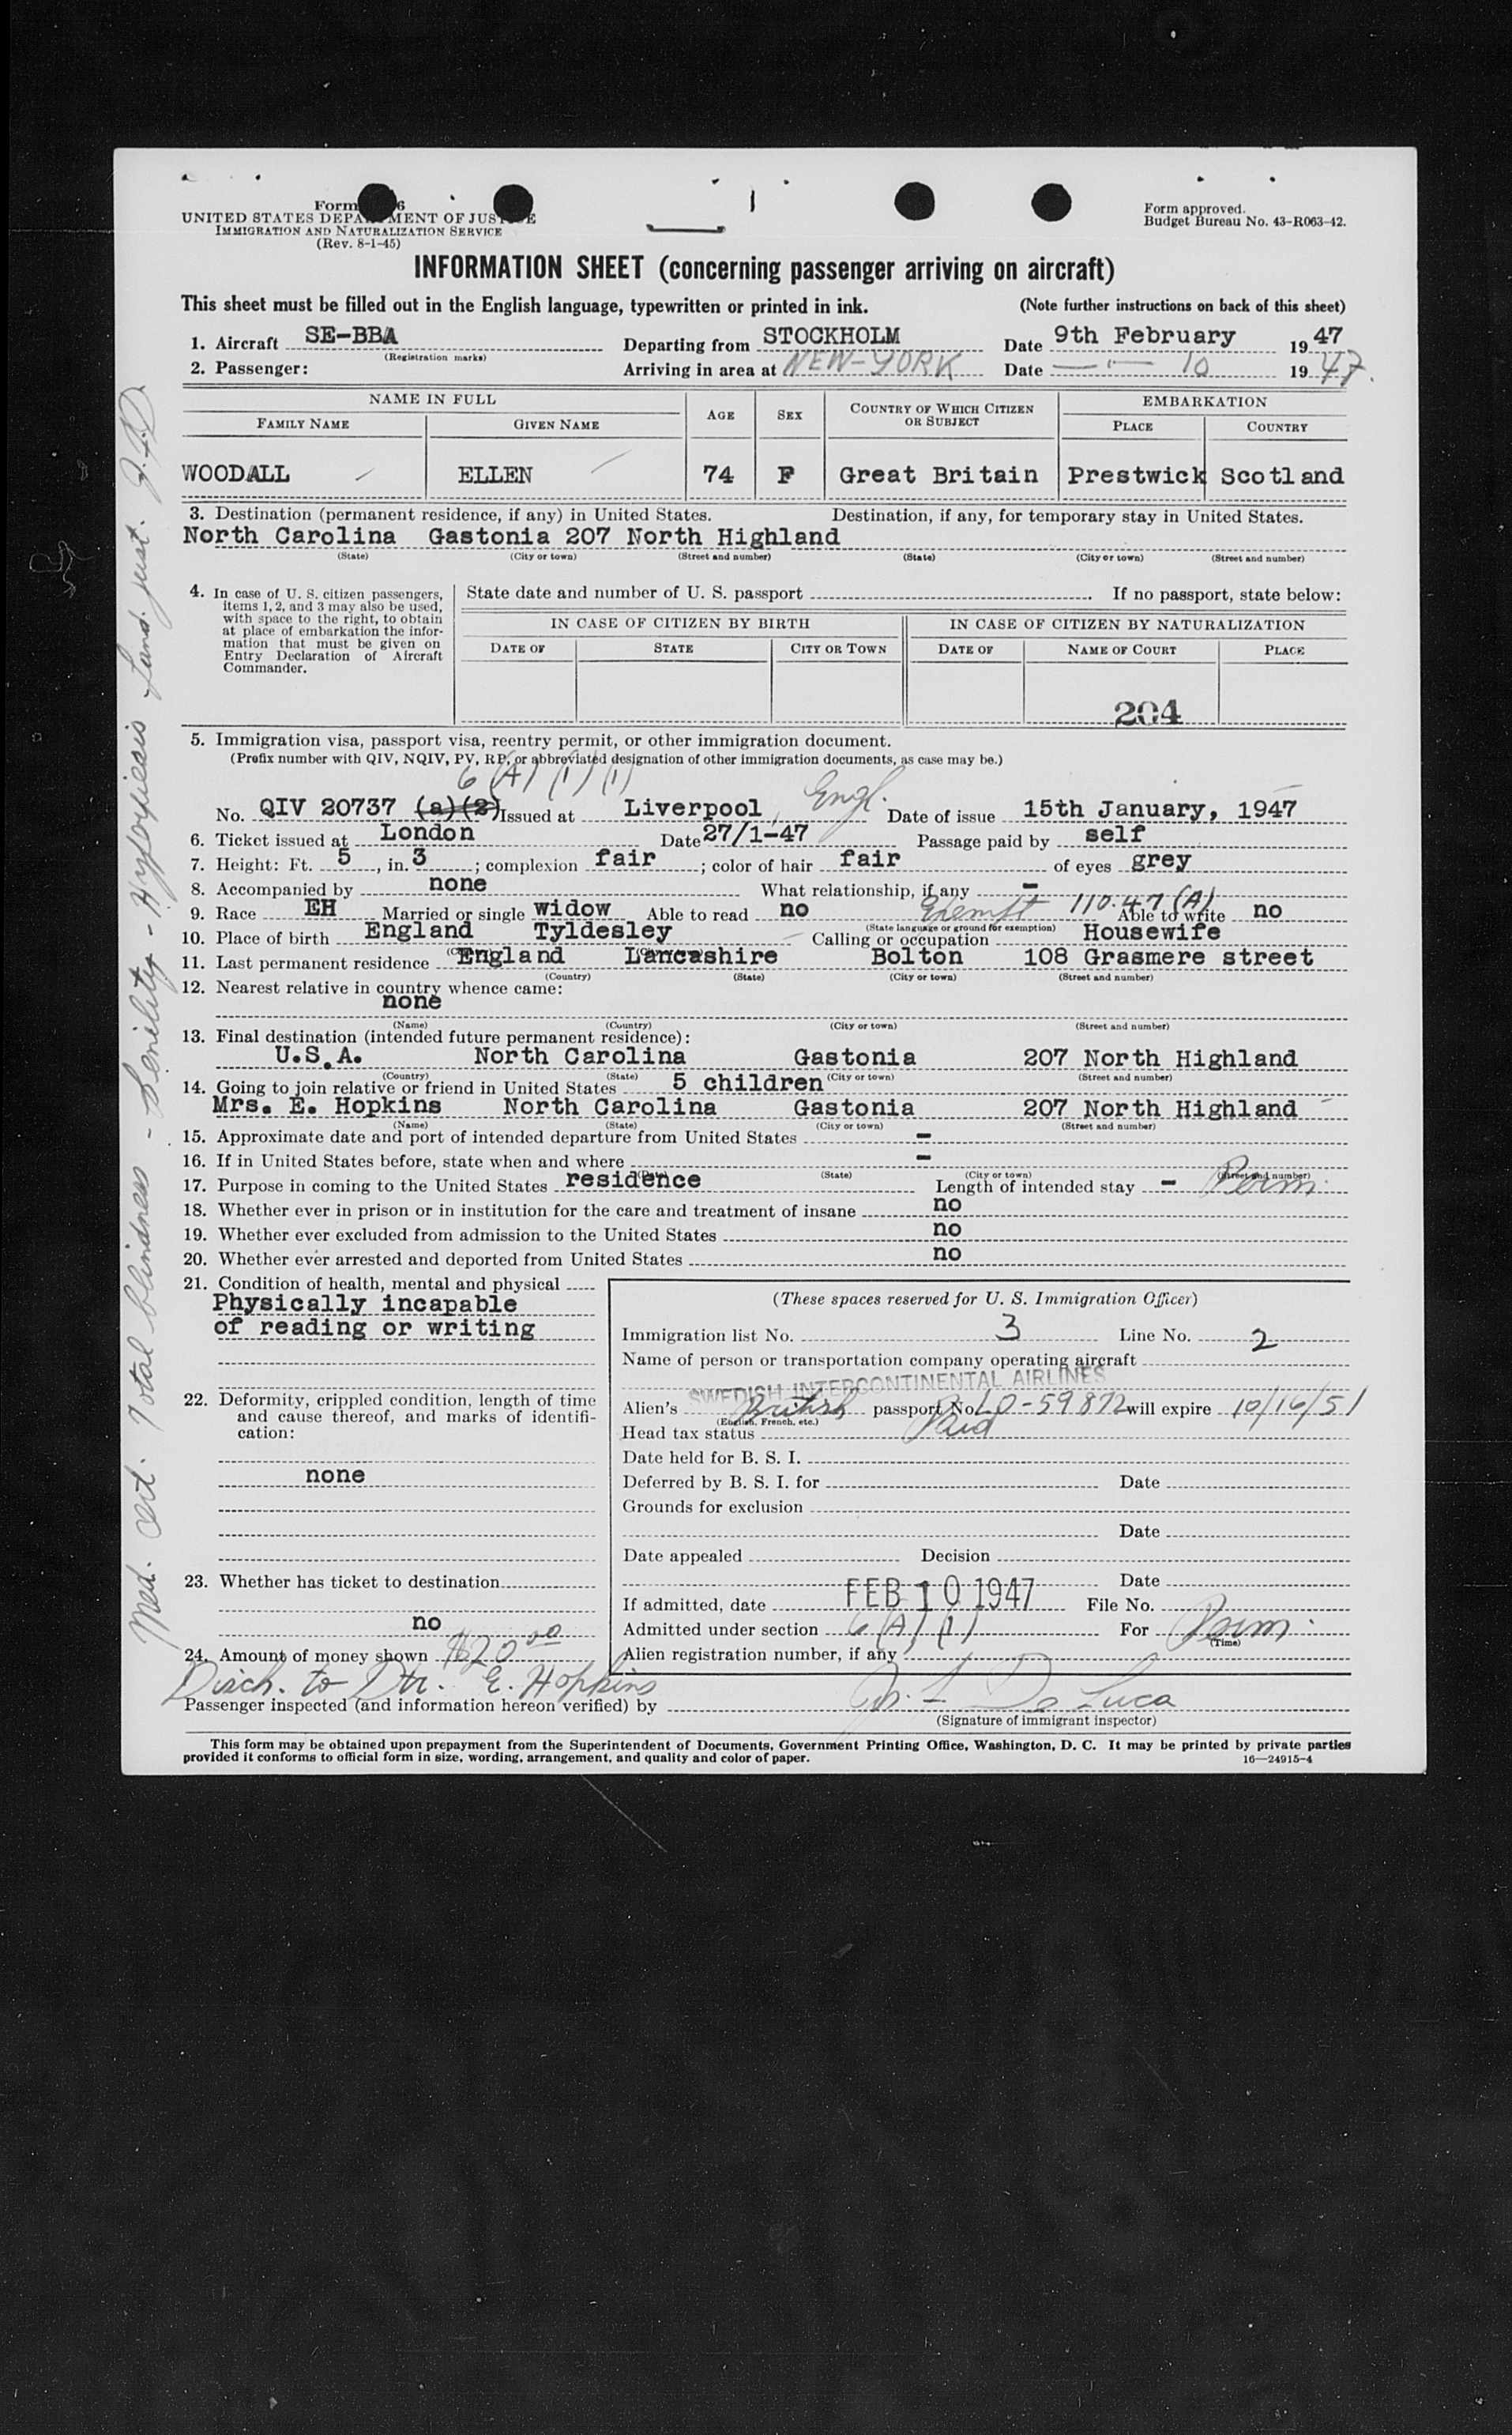 Form
6
UNITED STATES DEPARTMENT OF JUSTICE
IMMIGRATION AND NATURALIZATION SERVICE
(Rev. 8-1-45)
Form approved.
Budget Bureau No. 43-R063-42.
INFORMATION SHEET (concerning passenger arriving on aircraft)
This sheet must be filled out in the English language, typewritten or printed in ink. (Note further instructions on back of this sheet)
1. Aircraft SE-BBA Departing from STOCKHOLM Date 9th February 1947
(Registration marks)
2. Passenger: Arriving in area at NEW-YORK Date — " — 10 1947.
NAME IN FULL AGE SEX COUNTRY OF WHICH CITIZEN OR SUBJECT EMBARKATION
FAMILY NAME GIVEN NAME PLACE COUNTRY
WOODALL ELLEN 74 F Great Britain Prestwick Scotland
3. Destination (permanent residence, if any) in United States. Destination, if any, for temporary stay in United States.
North Carolina Gastonia 207 North Highland
(State) (City or town) (Street and number) (State) (City or town) (Street and number)
4. In case of U. S. citizen passengers,
items 1, 2, and 3 may also be used,
with space to the right, to obtain
at place of embarkation the infor-
mation that must be given on
Entry Declaration of Aircraft
Commander.
State date and number of U. S. passport . If no passport, state below:
IN CASE OF CITIZEN BY BIRTH IN CASE OF CITIZEN BY NATURALIZATION
DATE OF STATE CITY OR TOWN DATE OF NAME OF COURT PLACE
204
5. Immigration visa, passport visa, reentry permit, or other immigration document.
(Prefix number with QIV, NQIV, PV, RP, or abbreviated designation of other immigration documents, as case may be.)
6 (A) (1) (1)
No. QIV 20737 (a)(2) Issued at Liverpool, Engl. Date of issue 15th January, 1947
6. Ticket issued at London Date 27/1-47 Passage paid by self
7. Height: Ft. 5, in. 3; complexion fair; color of hair fair of eyes grey
8. Accompanied by none What relationship, if any -
9. Race EH Married or single widow Able to read no Exempt 110.47 (A) Able to write no
(State language or ground for exemption)
10. Place of birth England Tyldesley Calling or occupation Housewife
11. Last permanent residence England Lancashire Bolton 108 Grasmere street
(Country) (State) (City or town) (Street and number)
12. Nearest relative in country whence came:
none
(Name) (Country) (City or town) (Street and number)
13. Final destination (intended future permanent residence):
U.S.A. North Carolina Gastonia 207 North Highland
(Country) (State) (City or town) (Street and number)
14. Going to join relative or friend in United States 5 children
Mrs. E. Hopkins North Carolina Gastonia 207 North Highland
(Name) (State) (City or town) (Street and number)
15. Approximate date and port of intended departure from United States -
16. If in United States before, state when and where -
(Date) (State) (City or town) (Street and number)
17. Purpose in coming to the United States residence Length of intended stay - Perm.
18. Whether ever in prison or in institution for the care and treatment of insane no
19. Whether ever excluded from admission to the United States no
20. Whether ever arrested and deported from United States no
21. Condition of health, mental and physical
Physically incapable
of reading or writing
22. Deformity, crippled condition, length of time
and cause thereof, and marks of identifi-
cation:
none
23. Whether has ticket to destination
no
24. Amount of money shown $20 00
(These spaces reserved for U. S. Immigration Officer)
Immigration list No. 3 Line No. 2
Name of person or transportation company operating aircraft
SWEDISH INTERCONTINENTAL AIRLINES
Alien's British passport No. LO-59872 will expire 10/16/51
(English, French, etc.)
Head tax status Paid
Date held for B. S. I.
Deferred by B. S. I. for Date
Grounds for exclusion
Date
Date appealed Decision
Date
If admitted, date FEB 10 1947 File No.
Admitted under section 6 (A) (1) For Perm.
(Time)
Alien registration number, if any
Disch. to Dtr. E. Hopkins
Passenger inspected (and information hereon verified) by De Luca
(Signature of immigrant inspector)
This form may be obtained upon prepayment from the Superintendent of Documents, Government Printing Office, Washington, D. C. It may be printed by private parties
provided it conforms to official form in size, wording, arrangement, and quality and color of paper. 16—24915-4
Med. Cert. Total blindness - Senility -